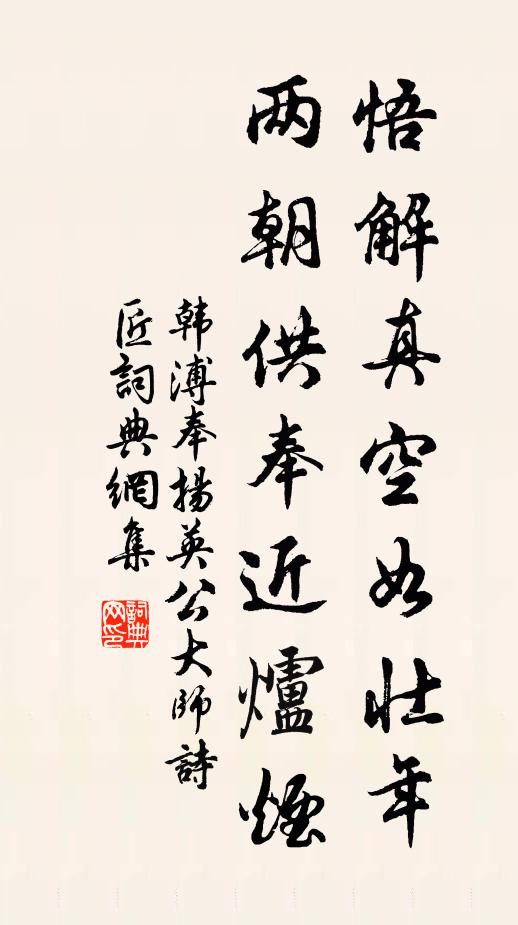 悟解真空始壮年
两朝供奉近爐煙
韩溥奉揚英公大师詩
匠詞典網集
詞典网印